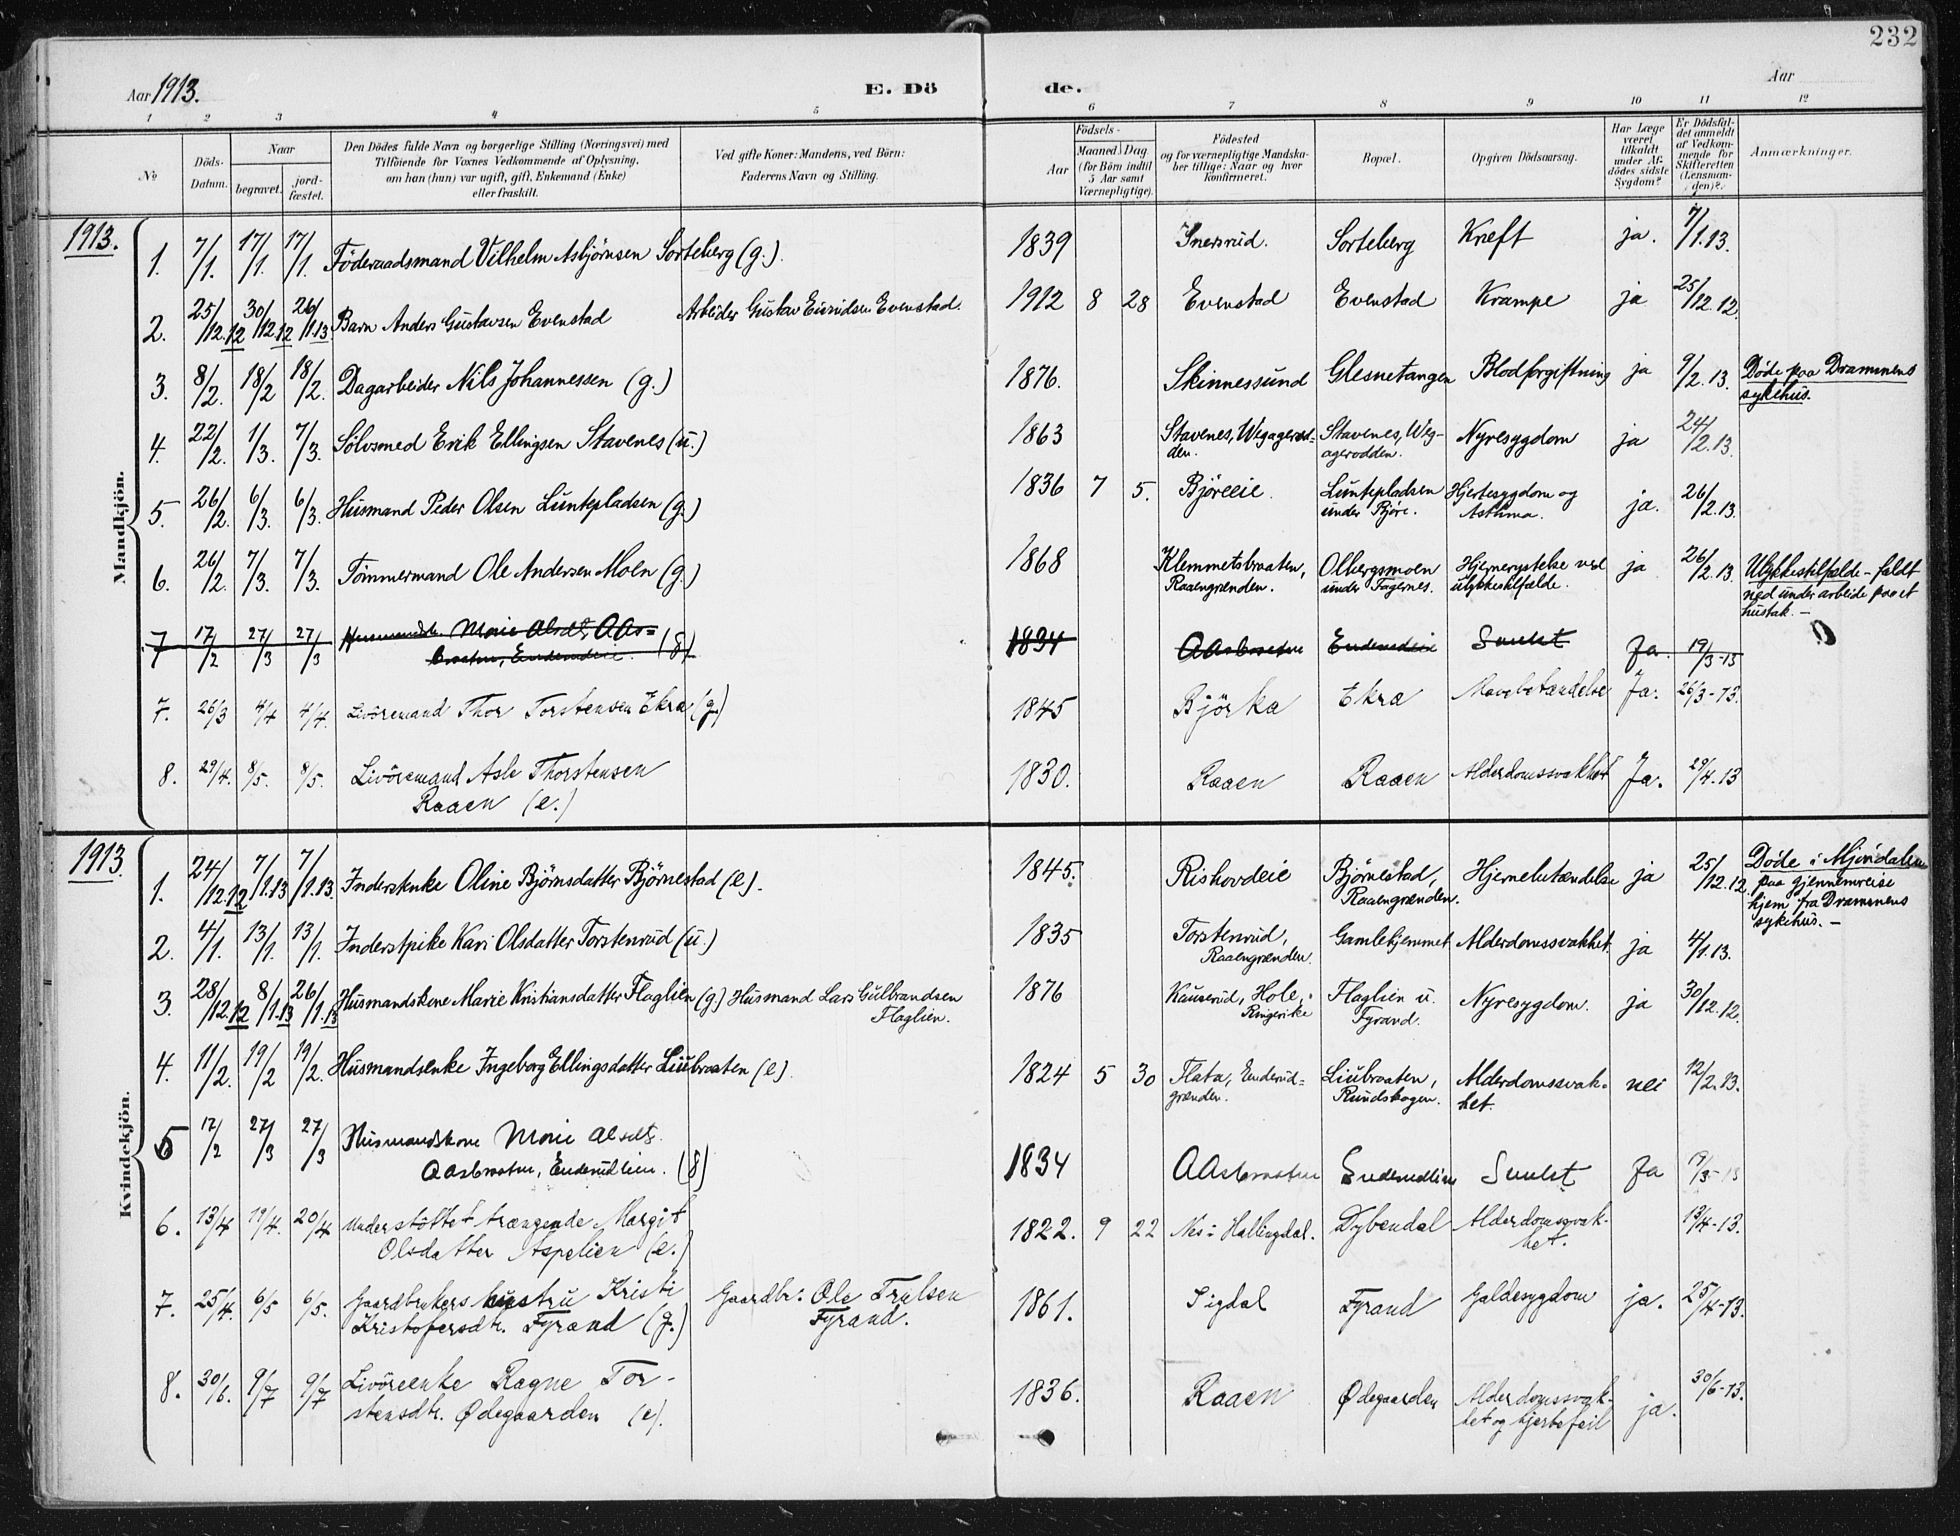 232
Aar 1913.
E. Dö
de.
Aar
1 2 3 4 5 6 7 8 9 10 11 12
No
Döds-
Datum.
Naar
begravet.
jord-
fæstet.
Den Dödes fulde Navn og borgerlige Stilling (Næringsvei) med
Tilföiende for Voxnes Vedkommende af Oplysning,
om han (hun) var ugift, gift, Enkemand (Enke)
eller fraskilt.
Ved gifte Koner: Mandens, ved Börn:
Faderens Navn og Stilling.
Födsels-
Aar
Maaned. Dag
(for Börn indtil
5 Aar samt
Værnepligtige).
Födested
og for værnepligtige Mandska-
ber tillige: Naar og hvor
konfirmeret.
Bopæl.
Opgiven Dödsaarsag.
Har Læge
været
tilkaldt
under Af-
dödes sidste
Sygdom?
Er Dödsfal-
det anmeldt
af Vedkom-
mende for
Skifteretten
(Lensman-
den)?
Anmærkninger.
Mandkjön.
1913.
1. 7/1. 17/1. 17/1. Föderaadsmand Vilhelm Asbjørnsen Sorteberg (g.). 1839 Snersrud. Sorteberg Kreft ja. 7/1.13.
2. 25/12.12 30/12.12 26/1.13 Barn Anders Gustavsen Evenstad Arbeider Gustav Evensen Evenstad. 1912 8 28 Evenstad Evenstad Krampe ja 25/12.12.
3. 8/2. 18/2 18/2. Dagarbeider Nils Johannessen (g.) 1876. Skinnessund Glesnetangen Blodforgiftning ja 9/2.13. Døde paa Drammens
sykehus.
4. 22/2. 1/3. 7/3. Sölvsmed Erik Ellingsen Stavenes (u.) 1863 Stavenes, Wegagerod-
den. Stavenes, Weg-
agerodden. Nyresygdom ja 24/2.13.
5. 26/2. 6/3. 6/3. Husmand Peder Olsen Luntepladsen (g.) 1836 7 5. Björeeie. Luntepladsen
under Björe. Hjertesygdom og
Asthma. ja. 26/2.13.
6. 26/2. 7/3. 7/3. Tömmermand Ole Andersen Moen (g.) 1868 Klemmetsbraaten,
Raaengrænden. Olbergsmoen
under Fagernes. Hjernerystelse ved
ulykkestilfælde. ja 26/2.13. Ulykkestilfælde - faldt
ned under arbeide paa et
hustak. -
7 17/2 27/3 27/3 Husmandsk. Marie Alsdt. Aas-
braaten, Enderudeie. (g) 1834 Aasbraaten Enderudeie Svulst Ja. 19/3-13
7. 26/3 4/4 4/4. Livöremand Thor Torstensen Ekra (g.) 1845 Björka Ekra Mavebetændelse Ja. 26/3-13.
8. 29/4. 8/5. 8/5. Livöremand Asle Thorstensen
Raaen (e.) 1830. Raaen Raaen Alderdomssvakhet Ja. 29/4.13
Kvindekjön.
1913.
1. 24/12.12 7/1.13 7/1.13. Inderstenke Oline Bjørnsdatter Bjørnestad (e). 1845. Rishovdeie Bjørnestad,
Raaengrænden. Hjernebetændelse ja 25/12.12. Døde i Mjøndalen
paa gjennemreise
hjem fra Drammens
sykehus. -
2. 4/1. 13/1. 13/1. Inderstpike Kari Olsdatter Torstenrud (u.) 1835 Torstenrud,
Raaengrænden. Gamlehjemmet Alderdomssvakhet. ja 4/1.13.
3. 28/12.12 8/1.13 26/1.13 Husmandskone Marie Kristiansdatter Flaglien (g.) Husmand Lars Gulbrandsen
Flaglien. 1876 Hole,
Ringerike Flaglien u.
Fyrand. Nyresygdom. ja 30/12.12.
4. 11/2. 19/2 19/2. Husmandsenke Ingeborg Ellingsdatter Liubraaten (e). 1824 5 30 Flata, Enderud-
grænden. Liubraaten,
Rundskogen. Alderdomssvak-
het. nei 12/2.13.
5 17/2 27/3 27/3 Husmandskone Marie Alsdt.
Aasbraaten, Enderudlien. (g) 1834 Aasbraaten Enderudlien Svulst Ja 19/3-13
6. 13/4 19/4. 20/4 Understöttet trængende Margit
Olsdatter Aspelien (e.) 1822. 9 22 Nes i Hallingdal. Dybendal Alderdomsvak-
het. 13/4-13.
7. 25/4. 6/5 6/5. Gaardbrukers hustru Kristi
Kristofersdtr. Fyrand (g.) Gaardbr. Ole Trulsen
Fyrand. 1861. Sigdal Fyrand Galdesygdom ja. 25/4-13.
8. 30/6. 9/7 9/7 Livöreenke Ragne Tor-
stensdtr. Ødegaarden (e). 1836. Raaen Ødegaarden Alderdomssvak-
het og hjertefeil ja. 30/6-13.